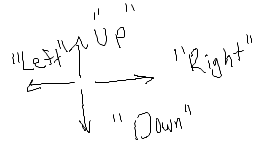 "Up"
"Left"
"Right"
"Down"